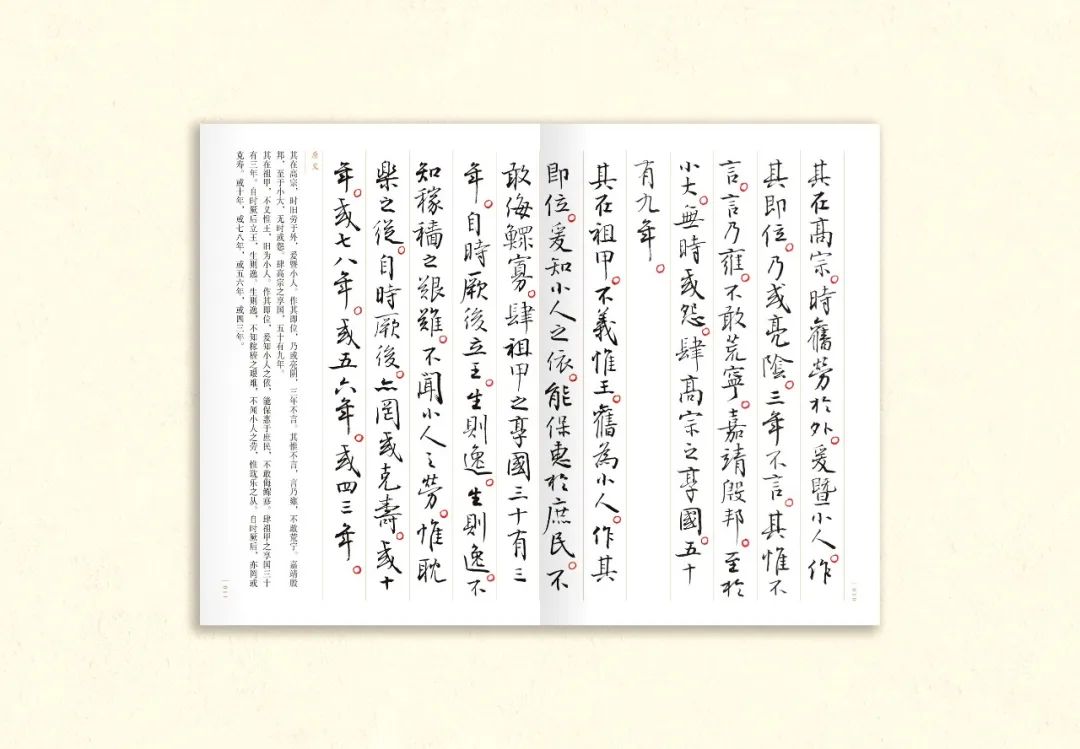 其在高宗。時舊勞於外。爰暨小人。作
其即位。乃或亮陰。三年不言。其惟不
言。言乃雍。不敢荒寧。嘉靖殷邦。至於
小大。無時或怨。肆高宗之享國。五十
有九年。
其在祖甲。不義惟王。舊為小人。作其
即位。爰知小人之依。能保惠於庶民。不
敢侮鰥寡。肆祖甲之享國三十有三
年。自時厥後立王。生則逸。生則逸。不
知稼穡之艱難。不聞小人之勞。惟耽
樂之從。自時厥後。亦罔或克壽。或十
年。或七八年。或五六年。或四三年。
原文
其在高宗，时旧劳于外，爰暨小人。作其即位，乃或亮阴，三年不言。其惟不言，言乃雍，不敢荒宁。嘉靖殷
邦，至于小大，无时或怨。肆高宗之享国，五十有九年。
其在祖甲，不义惟王，旧为小人。作其即位，爰知小人之依，能保惠于庶民，不敢侮鳏寡。肆祖甲之享国三十
有三年。自时厥后立王，生则逸，生则逸，不知稼穑之艰难，不闻小人之劳，惟耽乐之从。自时厥后，亦罔或
克寿。或十年，或七八年，或五六年，或四三年。
010
011